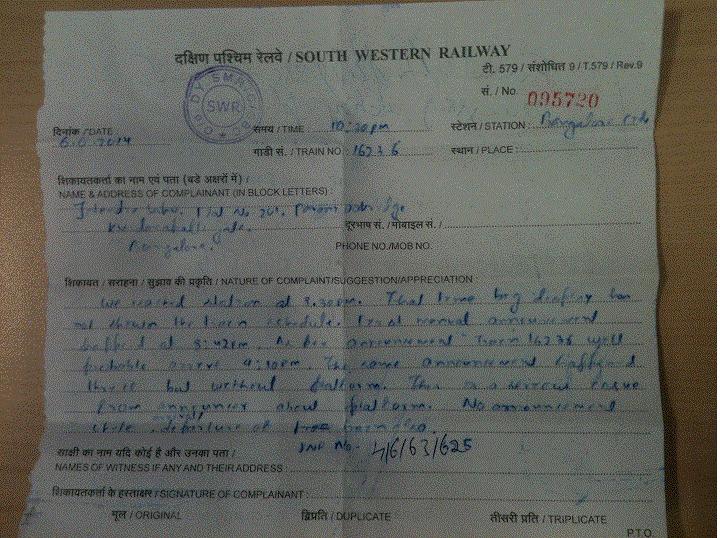 दक्षिण पश्चिम रेलवे / SOUTH WESTERN RAILWAY
टी. 579 / संशोधित 9 / T.579 / Rev.9
सं. / No. 095720
SWR
दिनांक / DATE समय / TIME : 10:20pm स्टेशन / STATION : Bangalore
गाडी सं. / TRAIN NO : 16236 स्थान / PLACE :
शिकायतकर्ता का नाम एवं पता (बडे अक्षरों में) /
NAME & ADDRESS OF COMPLAINANT (IN BLOCK LETTERS) :
दूरभाष सं. / मोबाइल सं. /
Bangalore. PHONE NO./MOB NO.
शिकायत / सराहना / सुझाव की प्रकृति / NATURE OF COMPLAINT/SUGGESTION/APPRECIATION :
We reached station at 8.30pm. That time big display has
not shown the train schedule. First manual announcement
at 8:42pm. As per announcement Train 16236 will
probable arrive 9:10pm. The same announcement happened
thrice but without platform. This is a serious issue
from announcer about platform. No announcement
arrival,
departure of
PNR No. 4/6/63/625
साक्षी का नाम यदि कोई है और उनका पता /
NAMES OF WITNESS IF ANY AND THEIR ADDRESS :
शिकायतकर्ता के हस्ताक्षर / SIGNATURE OF COMPLAINANT :
मूल / ORIGINAL द्विप्रति / DUPLICATE तीसरी प्रति / TRIPLICATE
P.T.O.